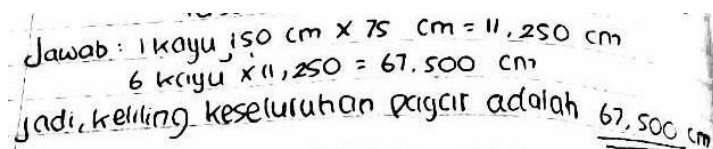 Jawab : 1 kayu 150 cm x 75 cm = 11.250 cm
6 kayu x 11,250 = 67.500 cm
Jadi, keliling keseluruhan pagar adalah 67,500 cm